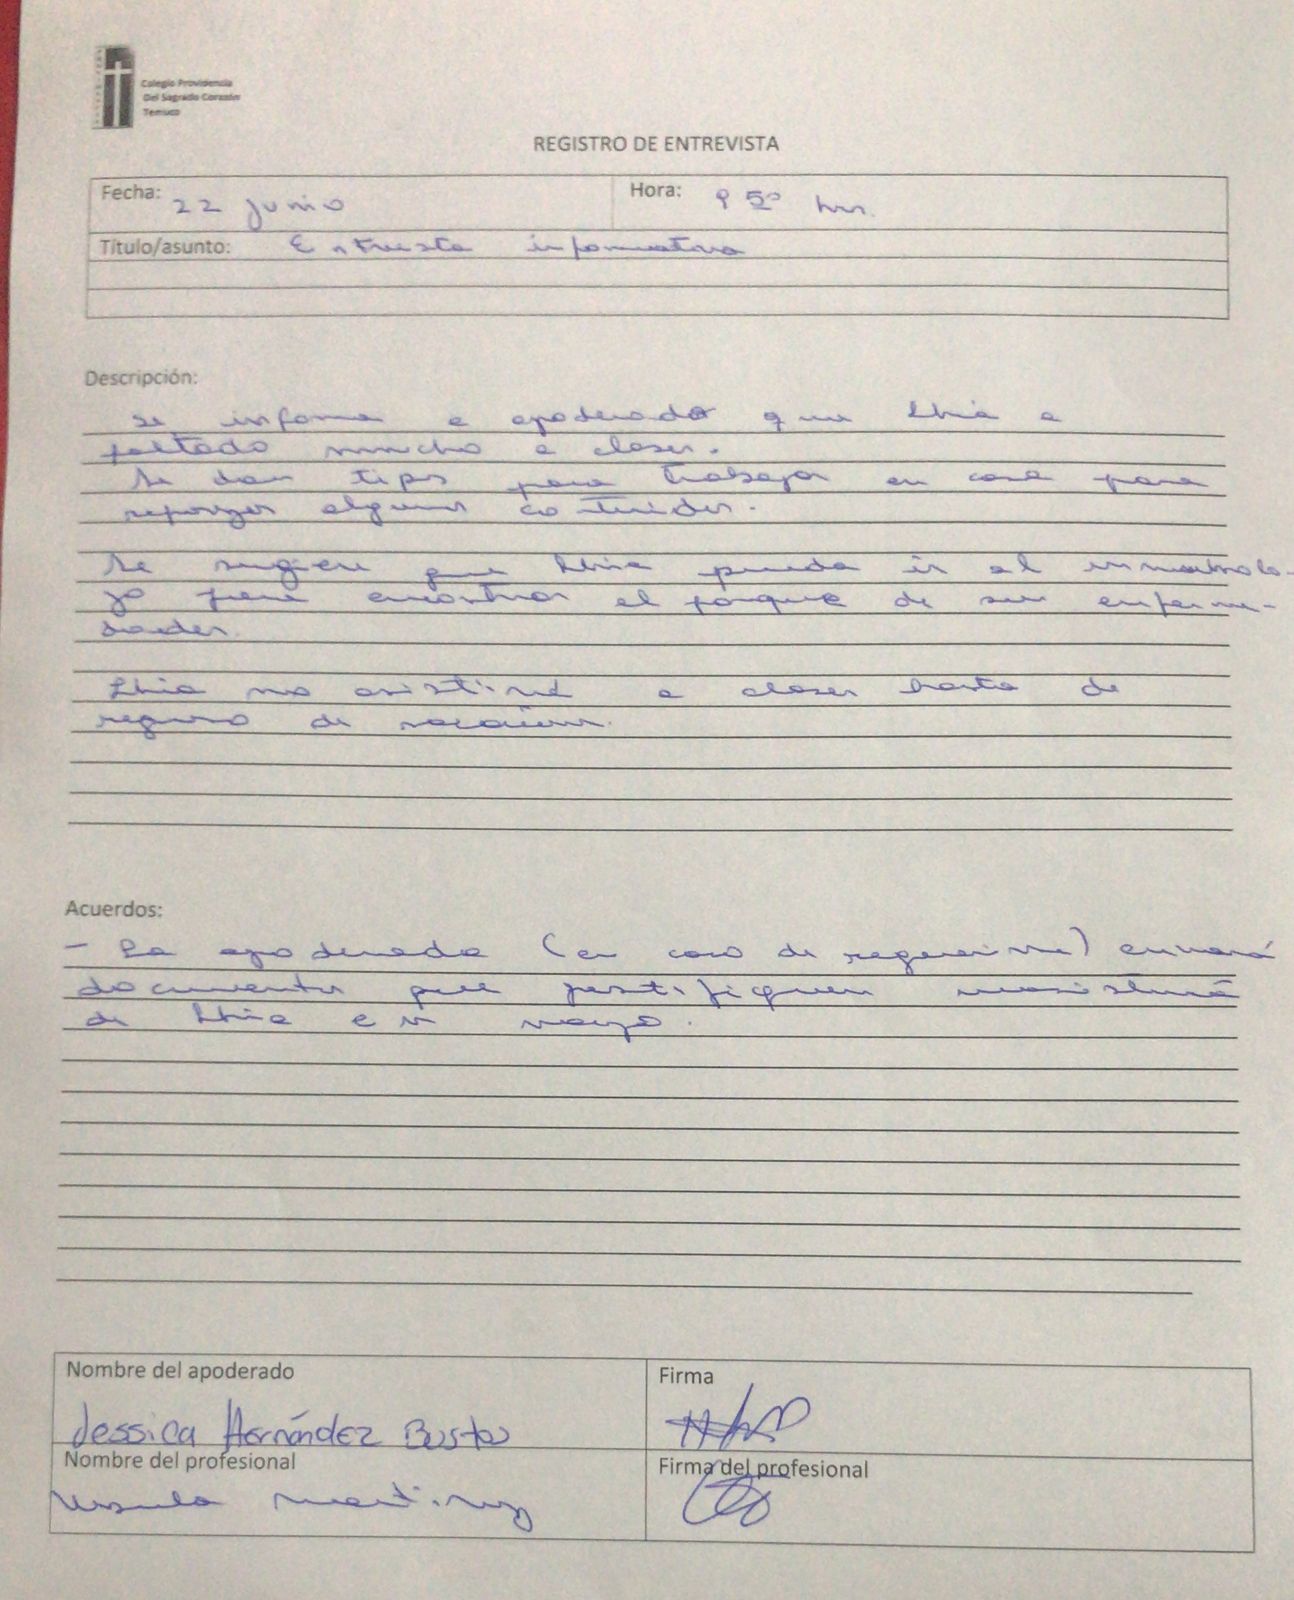 Colegio Providencia
Del Sagrado Corazón
Temuco
REGISTRO DE ENTREVISTA
Fecha: 22 junio Hora: 9 50 hrs.
Título/asunto: Entrevista informativa
Descripción:
Se informa a apoderado que a
faltado mucho a clases.
Se dan tips para trabajar en casa para
reforzar algunos contenidos.
Se sugiere que pueda ir al inmunolo-
go para encontrar el porque de sus enferme-
dades.
no asistirá a clases hasta de
regreso de vacaciones.
Acuerdos:
- La apoderada (en caso de requerirse) enviará
documentos que justifiquen inasistencia
de en mayo.
Nombre del apoderado Firma
Jessica Hernández Bustos
Nombre del profesional Firma del profesional
Ursula Martinez